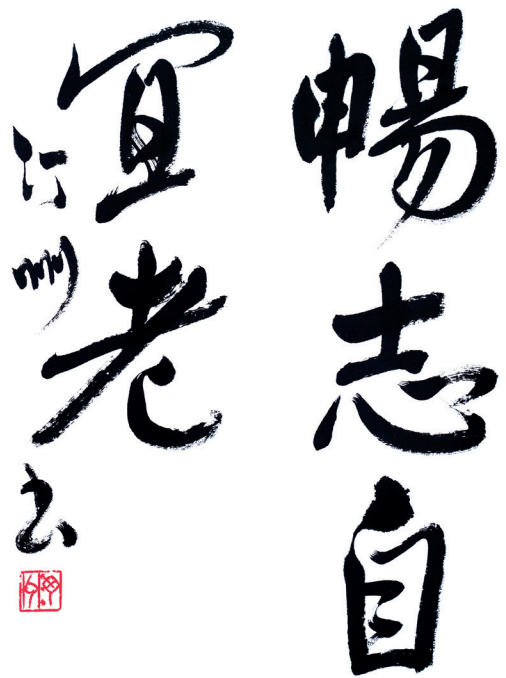 暢志自
宜老
州书